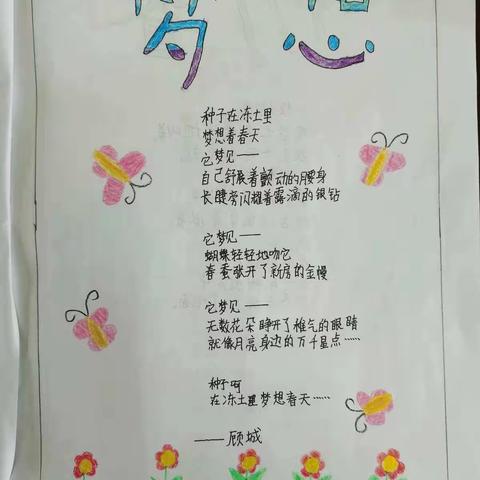 梦想
种子在冻土里
梦想着春天
它梦见——
自己舒展着颤动的腰身
长睫旁闪耀着露滴的银钻
它梦见——
蝴蝶轻轻地吻它
春蚕张开了新房的金幔
它梦见——
无数花朵睁开了稚气的眼睛
就像月亮身边的万千星点……
种子呵
在冻土里梦想春天……
——顾城